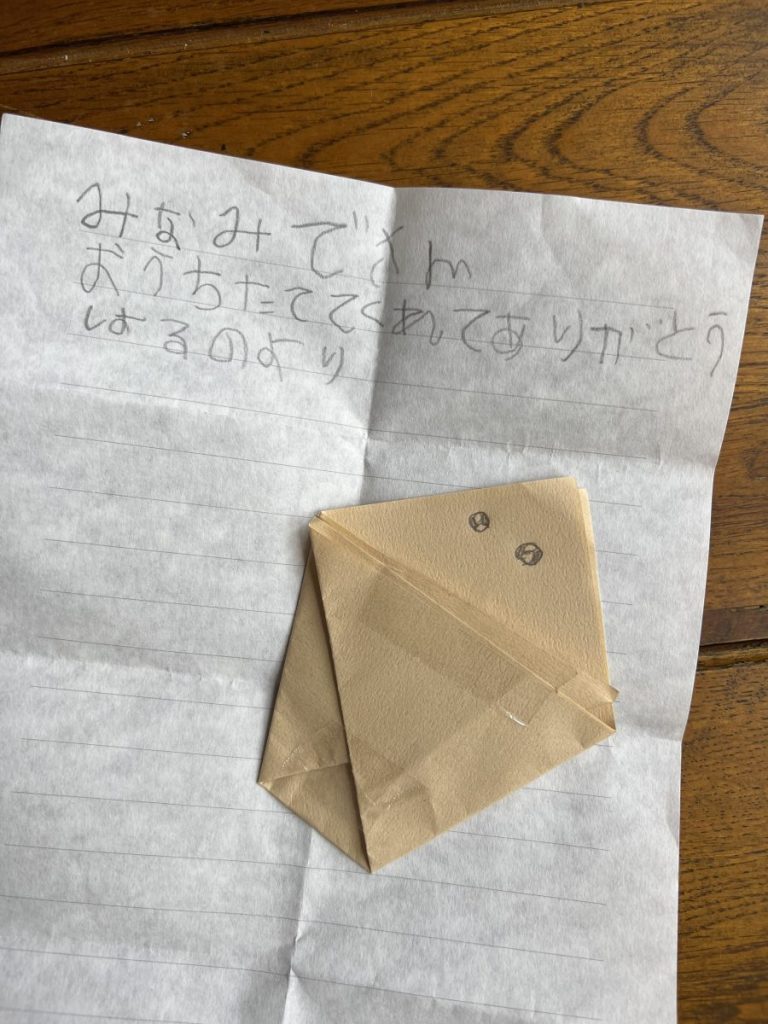 みなみでさん
おうちたててくれてありがとう
はるのより